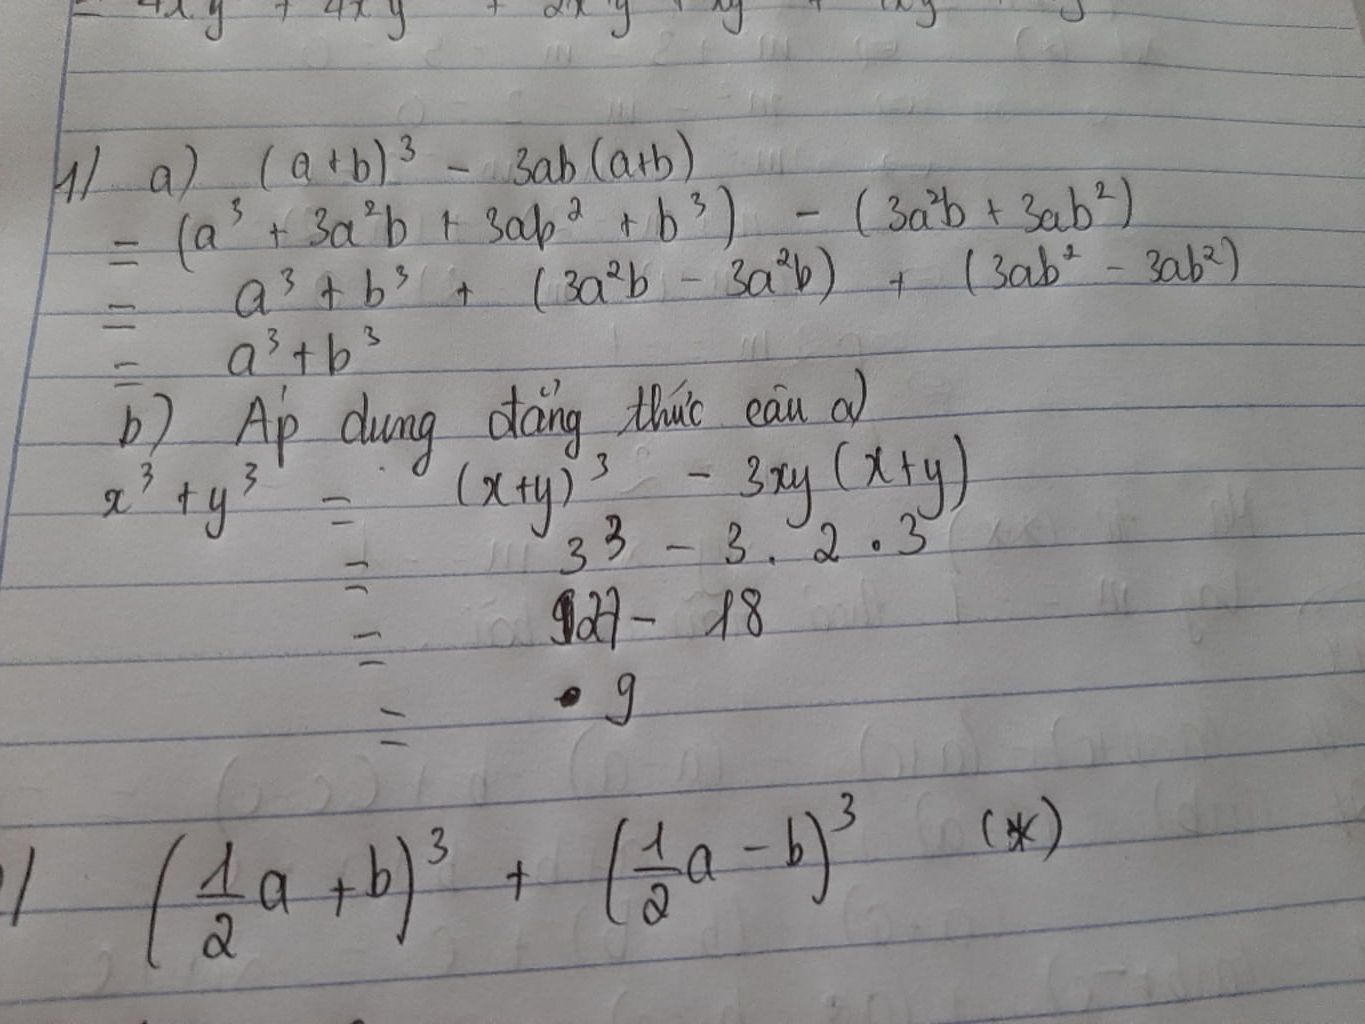 1/ a) (a+b)³ - 3ab(a+b)
= (a³ + 3a²b + 3ab² + b³) - (3a²b + 3ab²)
= a³ + b³ + (3a²b - 3a²b) + (3ab² - 3ab²)
= a³ + b³
b) Áp dung đẳng thức câu a)
x³ + y³ = (x+y)³ - 3xy(x+y)
= 3³ - 3 . 2 . 3
= 27 - 18
= 9
/ (1/2 a + b)³ + (1/2 a - b)³ (*)